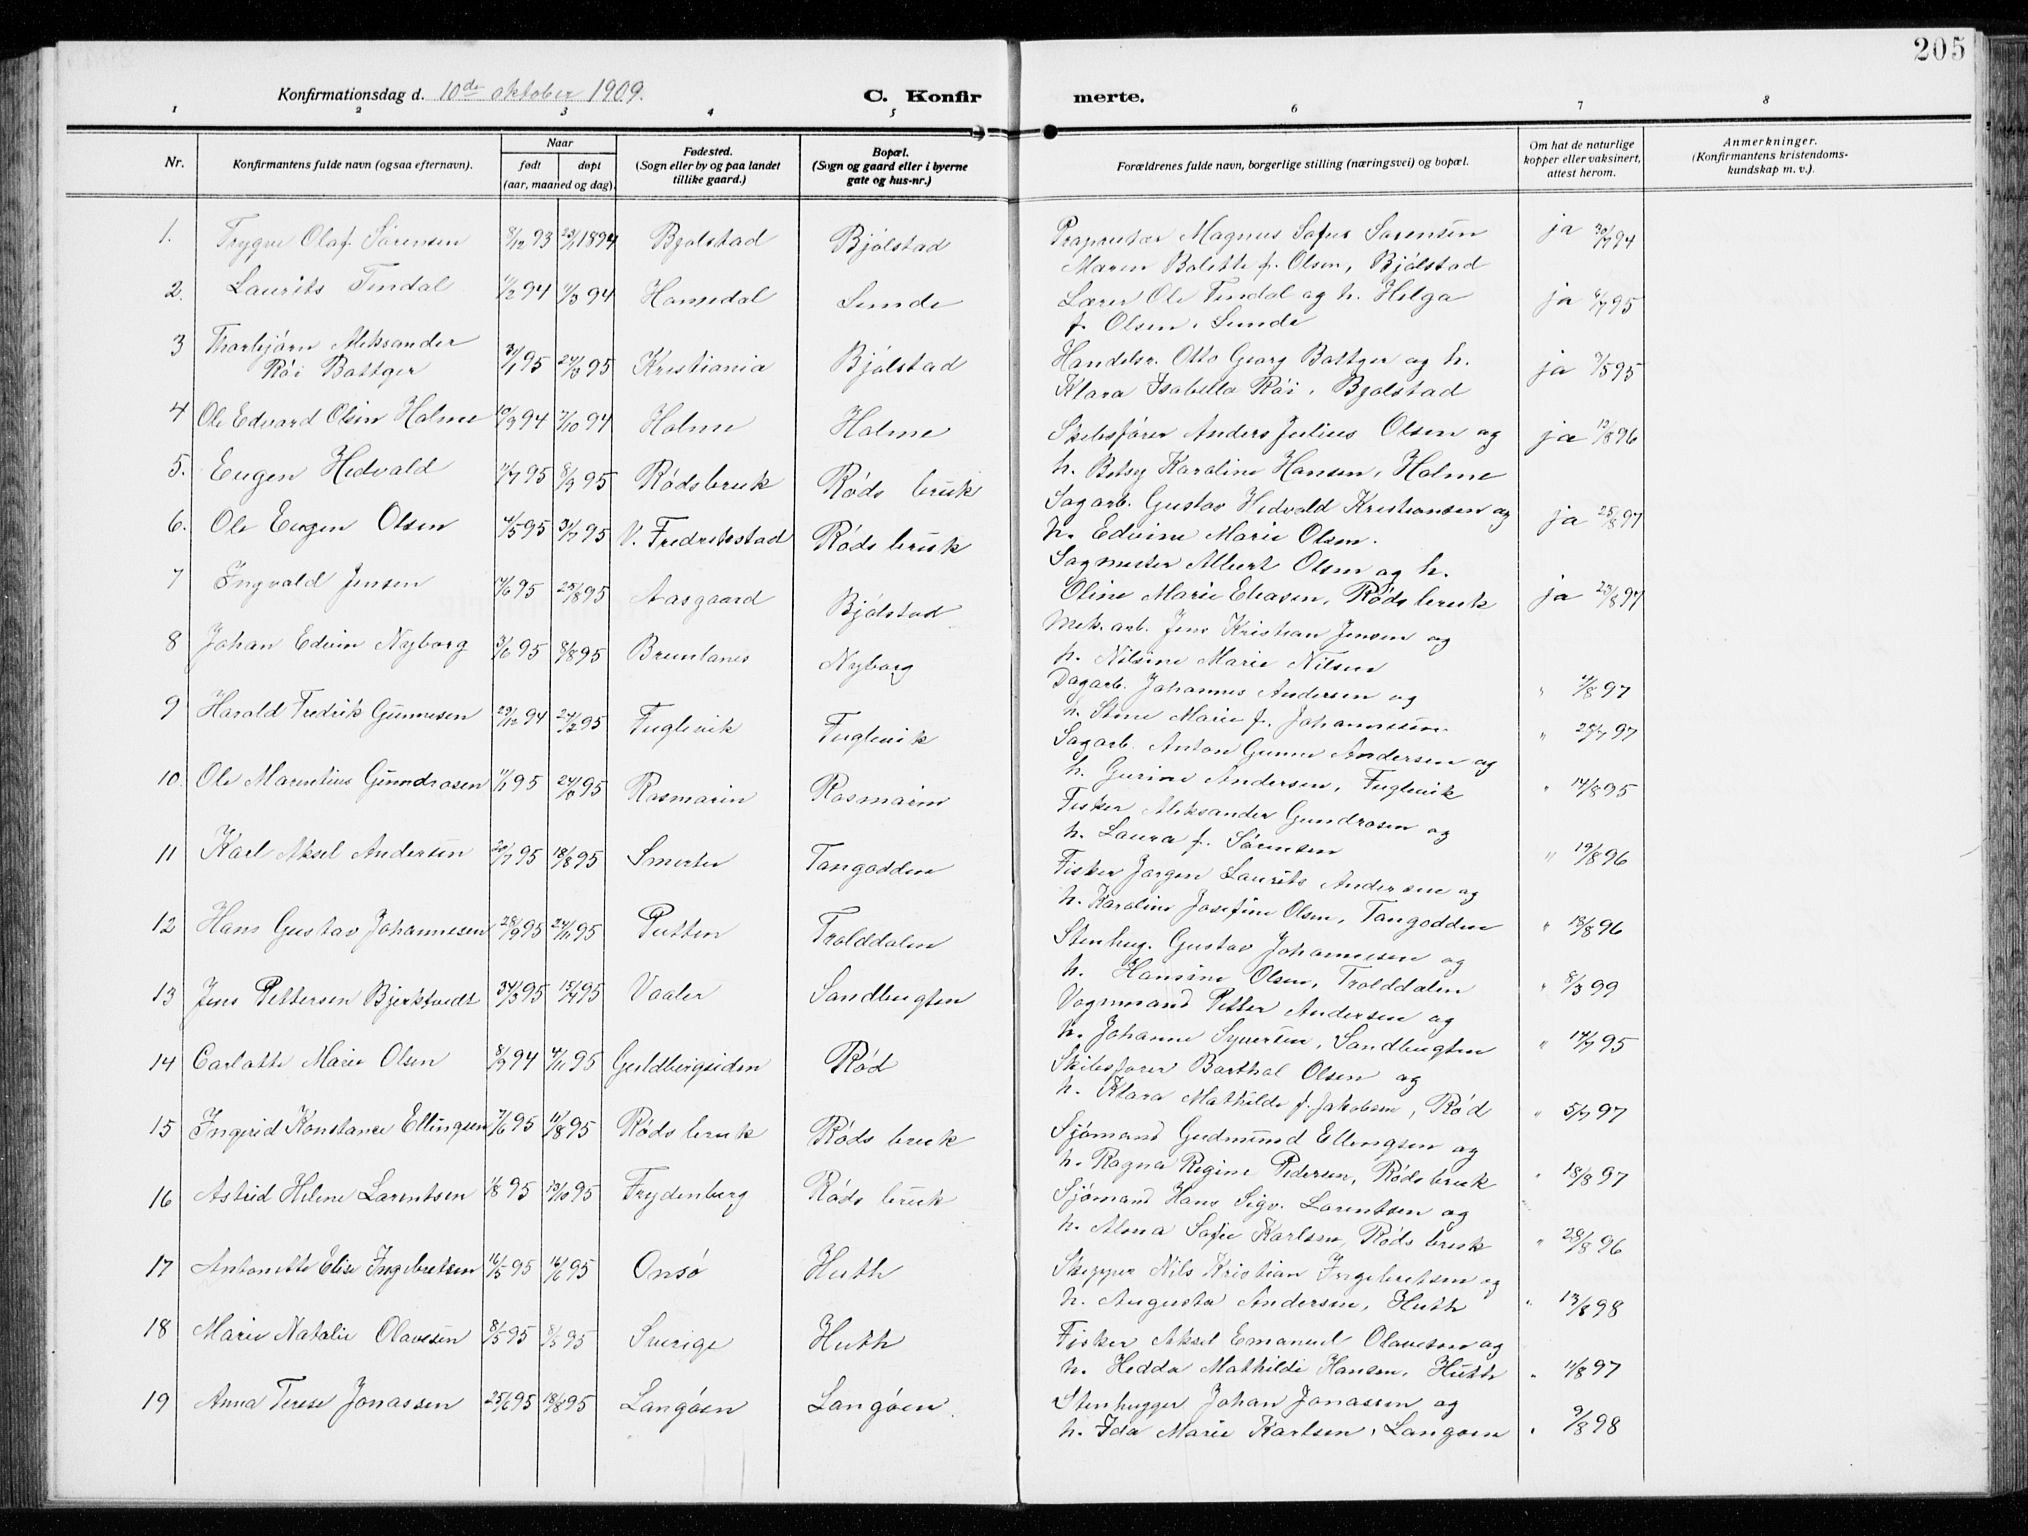 205
Konfirmationsdag d. 10de oktober 1909.
C. Konfir
merte.
1 2 3 4 5 6 7 8
Nr.
Konfirmantens fulde navn (ogsaa efternavn).
Naar
født
døpt
(aar, maaned og dag).
Fødested.
(Sogn eller by og paa landet
tillike gaard.)
Bopæl.
(Sogn og gaard eller i byerne
gate og hus-nr.)
Forældrenes fulde navn, borgerlige stilling (næringsvei) og bopæl.
Om hat de naturlige
kopper eller vaksinert,
attest herom.
Anmerkninger.
(Konfirmantens kristendoms-
kundskap m. v.).
1. Trygve Olaf Sørensen 8/12 93 1894 Bjølstad Bjølstad
Proprietær Magnus Sofus Sørensen ja 94
Maren Bolette f. Olsen, Bjølstad
2. Laurits Tindal 94 94 Hemsedal Sunde
Lærer Ole Tindal og h. Helga ja 95
f. Olsen, Sunde
3 Thorbjørn Aleksander
Røi Bøttger 31/1 95 24/3 95 Kristiania Bjølstad
Handelsr. Otto Georg Bøttger og h. ja 95
Klara Isabella Røi, Bjølstad
4 Ole Edvard Olsen Holme 10/9 94 7/10 94 Holme Holme
Skibsfører Anders Julius Olsen og ja 12/8 96
h. Betsy Karoline Hansen, Holme
5. Eugen Hedvald 7/7 95 8/9 95 Rødsbruk Røds bruk
Sagarb. Gustav Hedvald Kristiansen og ja 25/8 97
h. Edvine Marie Olsen.
6. Ole Eugen Olsen 4/5 95 31/7 95 V. Fredrikstad Røds bruk
Sagmester Albert Olsen og h.
Oline Marie Eliasen, Røds bruk ja 23/8 97
7 Ingvald Jensen 95 25/8 95 Aasgaard Bjølstad
Mek. arb. Jens Kristian Jensen og
h. Nilsine Marie Nilsen
8 Johan Edvin Nyborg 3/6 95 8/8 95 Brunlanes Nyborg
Dagarb. Johannes Andersen og " 97
h. Stine Marie f. Johannesen
9 Harald Fredrik Gunnesen 29/12 94 24/2 95 Fuglevik Fuglevik
Sagarb. Anton Gunne Andersen og " 25/7 97
h. Gurine Andersen, Fuglevik
10. Ole Marentius Gundrosen 95 95 Rosmarin Rosmarin
Fisker Aleksander Gundrosen og " 14/8 95
h. Laura f. Sørensen
11 Karl Aksel Andersen 20/7 95 18/8 95 Smerter Tangodden
Fisker Jørgen Laurits Andersen og " 19/8 96
h. Karoline Josefine Olsen, Tangodden
12 Hans Gustav Johannesen 28/9 95 24/11 95 Putten Trolddalen
Stenhug. Gustav Johannesen og " 13/8 96
h. Hansine Olsen, Trolddalen
13 Jens Pettersen Bjerktvedt 31/3 95 15/4 95 Vaaler Sandbugten
Vognmand Petter Andersen og " 8/3 99
h. Johanne Syversen, Sandbugten
14 Carlotte Marie Olsen 8/9 94 4/11 95 Guldbergsiden Rød
Skibsfører Barthol Olsen og " 14/7 95
h. Klara Mathilde f. Jakobsen, Rød
15 Ingerid Konstance Ellingsen 7/6 95 11/8 95 Røds bruk Røds bruk
Sjømand Gudmund Ellingsen og " 5/7 97
h. Ragna Regine Pedersen, Røds bruk
16 Astrid Helene Larentsen 1/8 95 13/10 95 Frydenberg Røds bruk
Sjømand Hans Sigv. Larentsen og " 18/8 97
h. Alma Sofie Karlsen, Røds bruk
17 Antonette Elise Ingebretsen 16/3 95 16/6 95 Onsø Huth
Skipper Nils Kristian Ingebretsen og " 28/8 96
h. Augusta Andersen, Huth
18 Marie Natalie Olavesen 8/5 95 8/5 95 Sverige Huth
Fisker Aksel Emanuel Olavesen og " 13/8 98
h. Hedda Mathilde Hansen, Huth
19 Anna Terese Jonassen 25/6 95 18/8 95 Langøen Langøen
Stenhugger Johan Jonassen og " 11/8 97
h. Ida Marie Karlsen, Langøen " 9/8 98